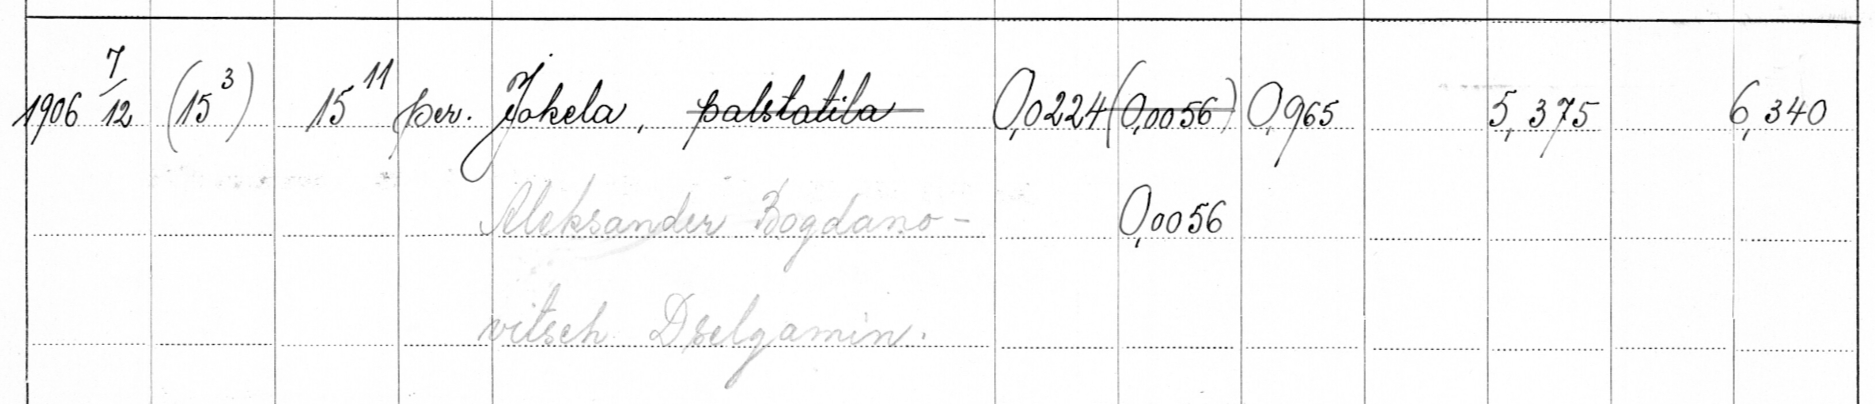 1906 7/12 (15³) 15¹¹ per. Jokela, palstatila 0,0224 (0,0056) 0,965 5,375 6,340
Aleksander Bogdano- 0,0056
vitsch Dselgamin.